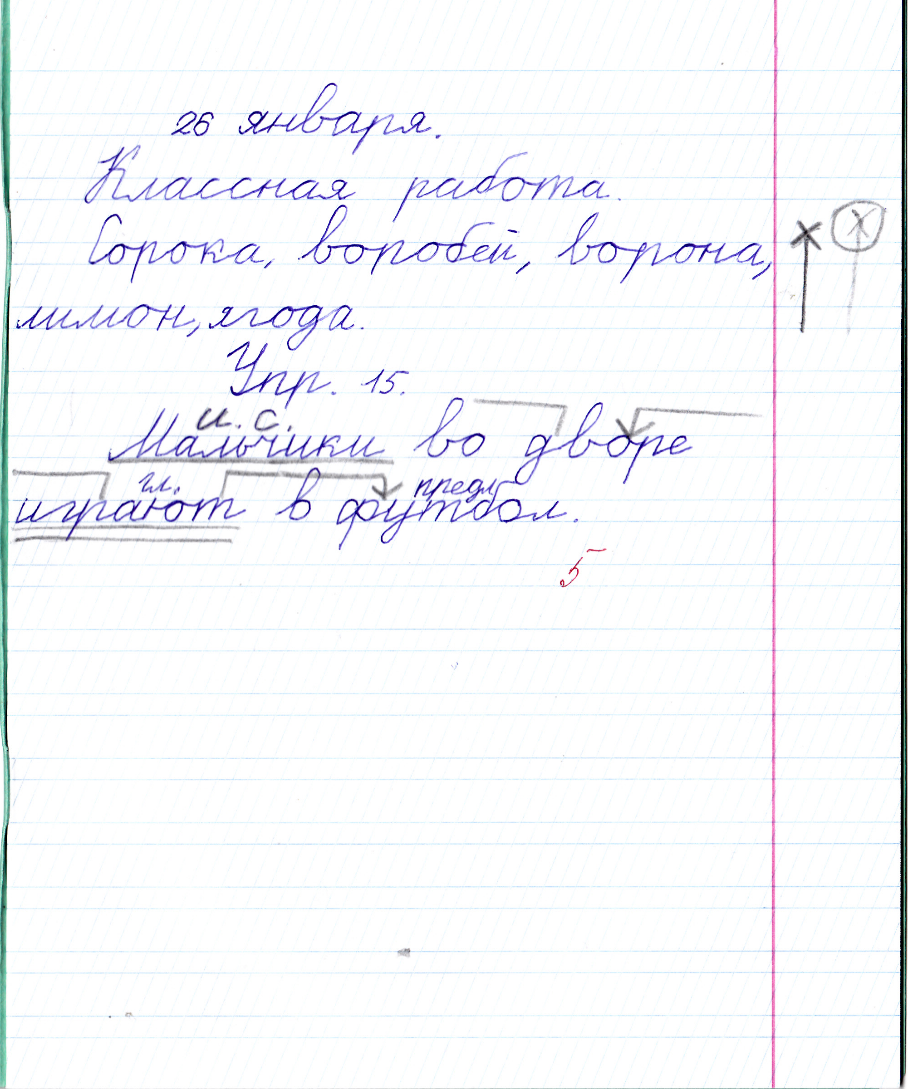 26 января.
Классная работа.
Сорока, воробей, ворона,
лимон, ягода.
Упр. 15.
и. с.
Мальчики во дворе
гл. предл
играют в футбол.
5